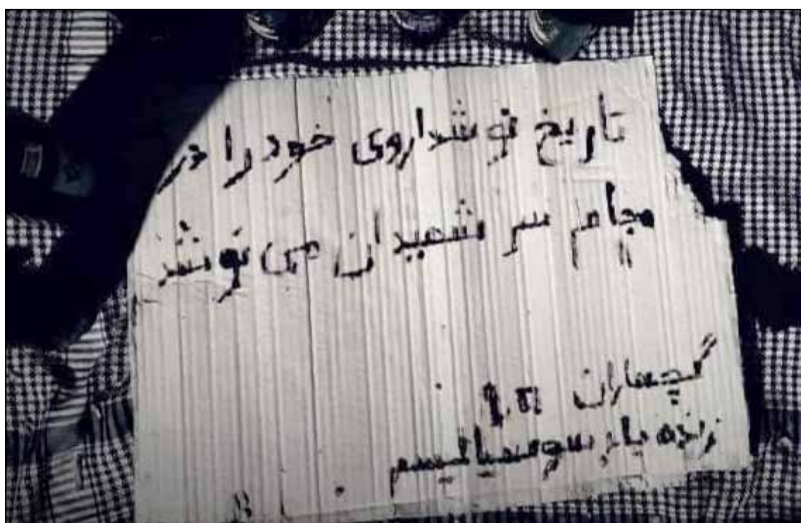 تاریخ نوشداروی خود را در
جام سر شهیدان می نوشد
گچساران
زنده باد سوسیالیسم